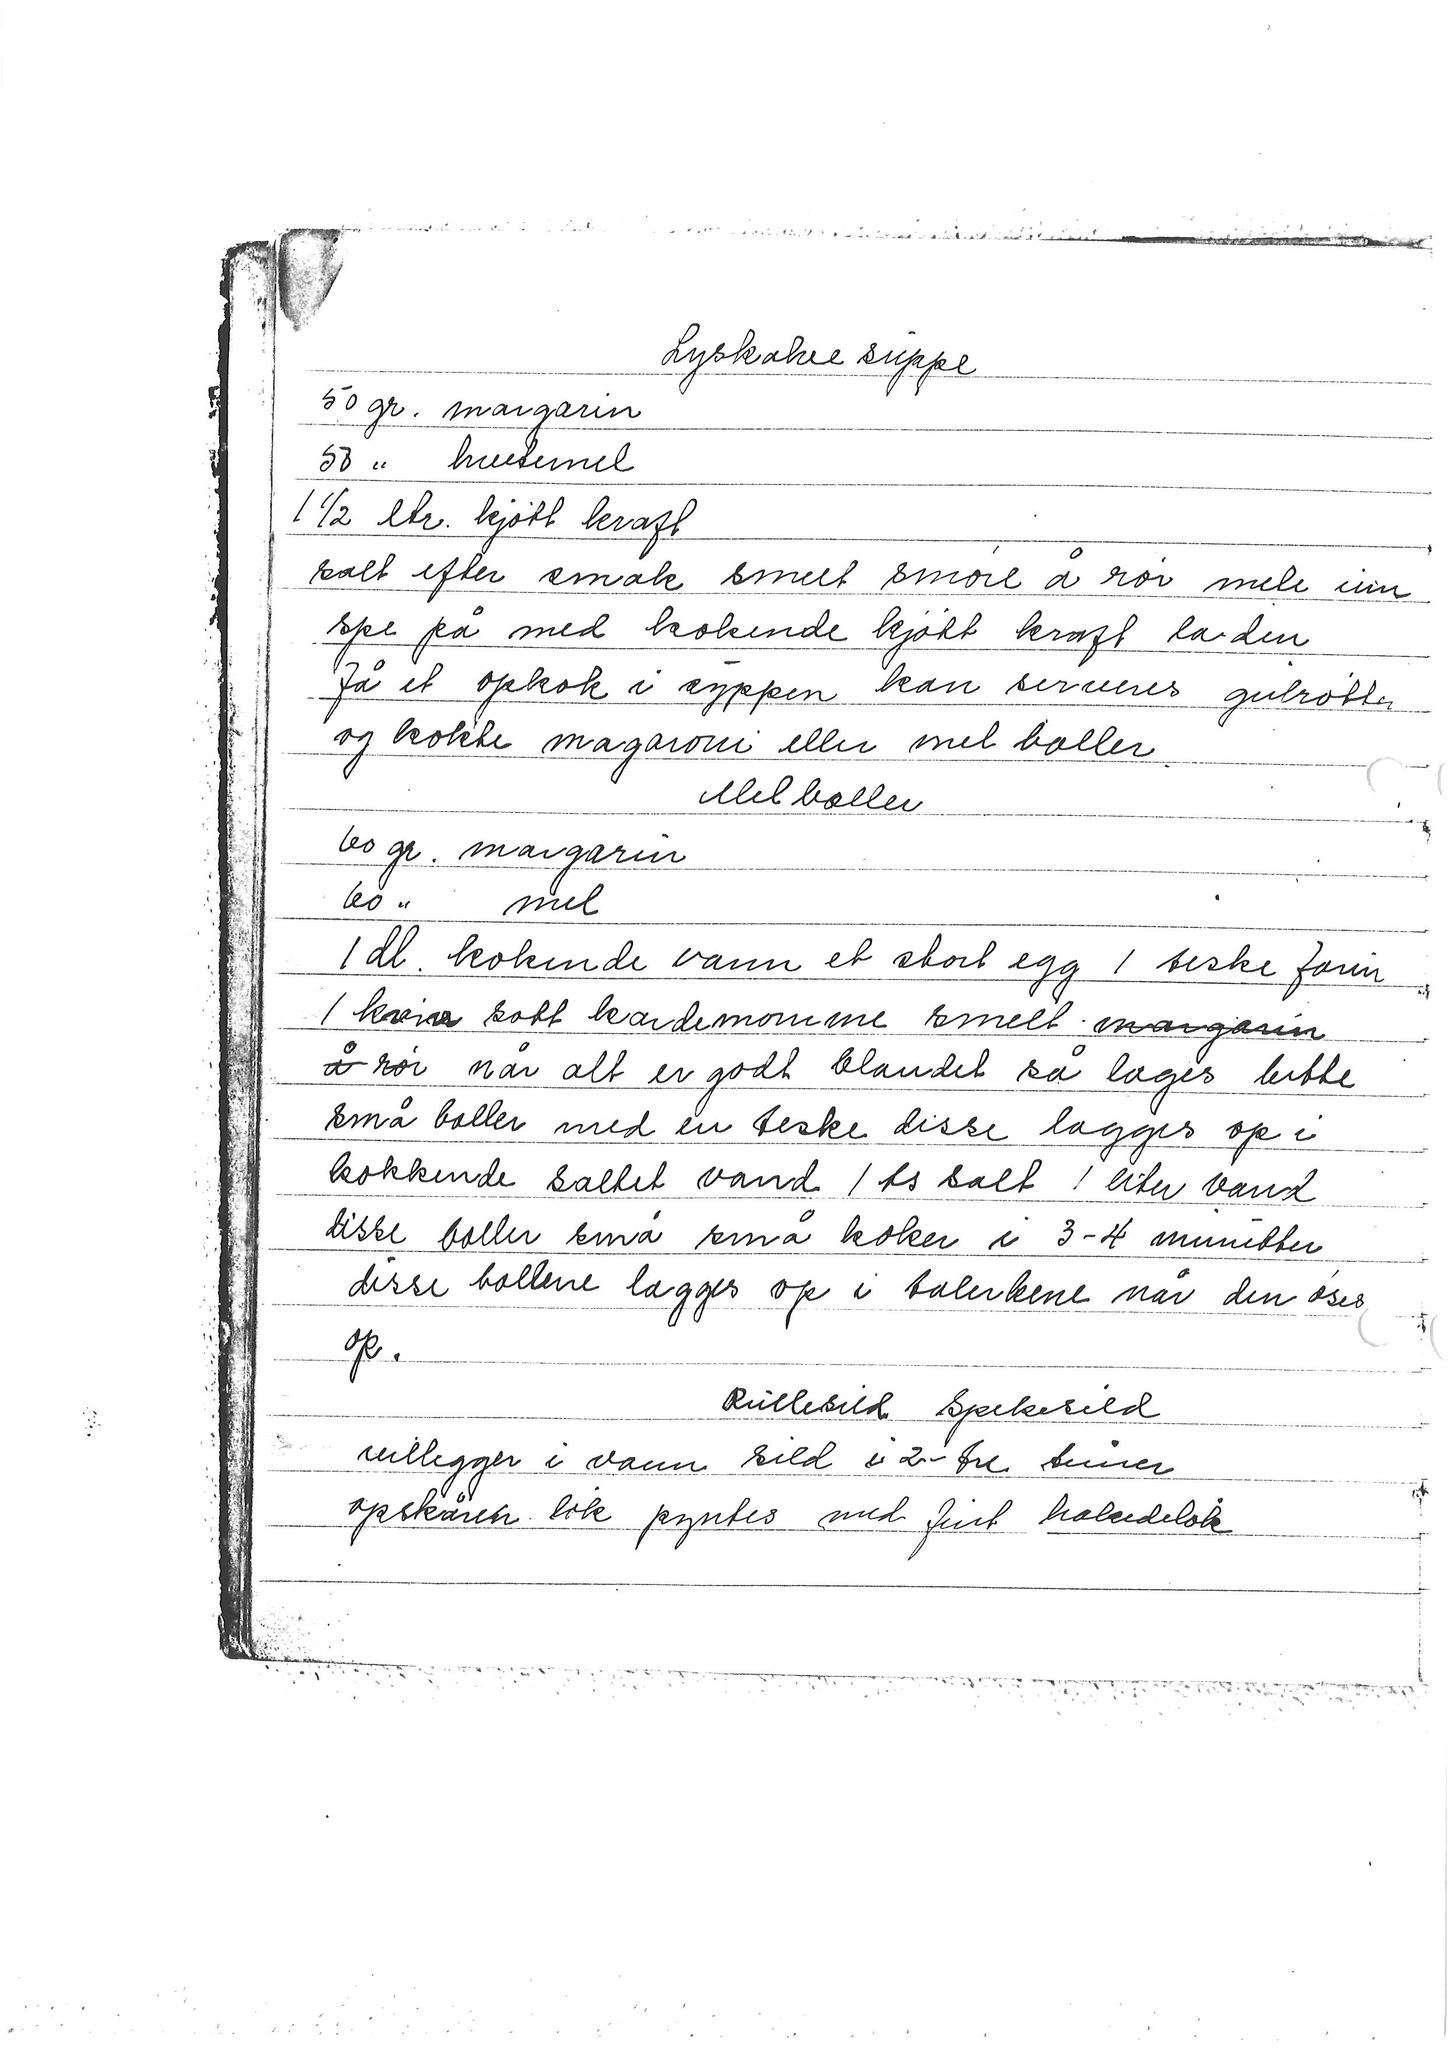 Lyskakee suppe
50 gr. margarin
50 " hvetemel
1 1/2 ltr. kjött kraft
salt efter smak smelt smöre å rör mele inn
spe på med kokende kjött kraft la den
få et opkok i syppen kan serveres gulrötter
og kokte magaroni eller mel boller.
Mel boller
60 gr. margarin
60 " mel
1 dl. kokende vann et stort egg 1 teske farin
1 sött kardemomme smelt margarin
å rör når alt er godt blandet så lages bitte
små boller med en teske disse lagges op i
kokkende saltet vand 1 ts salt 1 liter vand
disse boller små små koker i 3-4 minutter
disse bollene lagges op i talerkene når den öses
op.
Rullesild Spekesild
i vann sild i 2-tre timer
opskåren lök pyntes med fint hakedelök